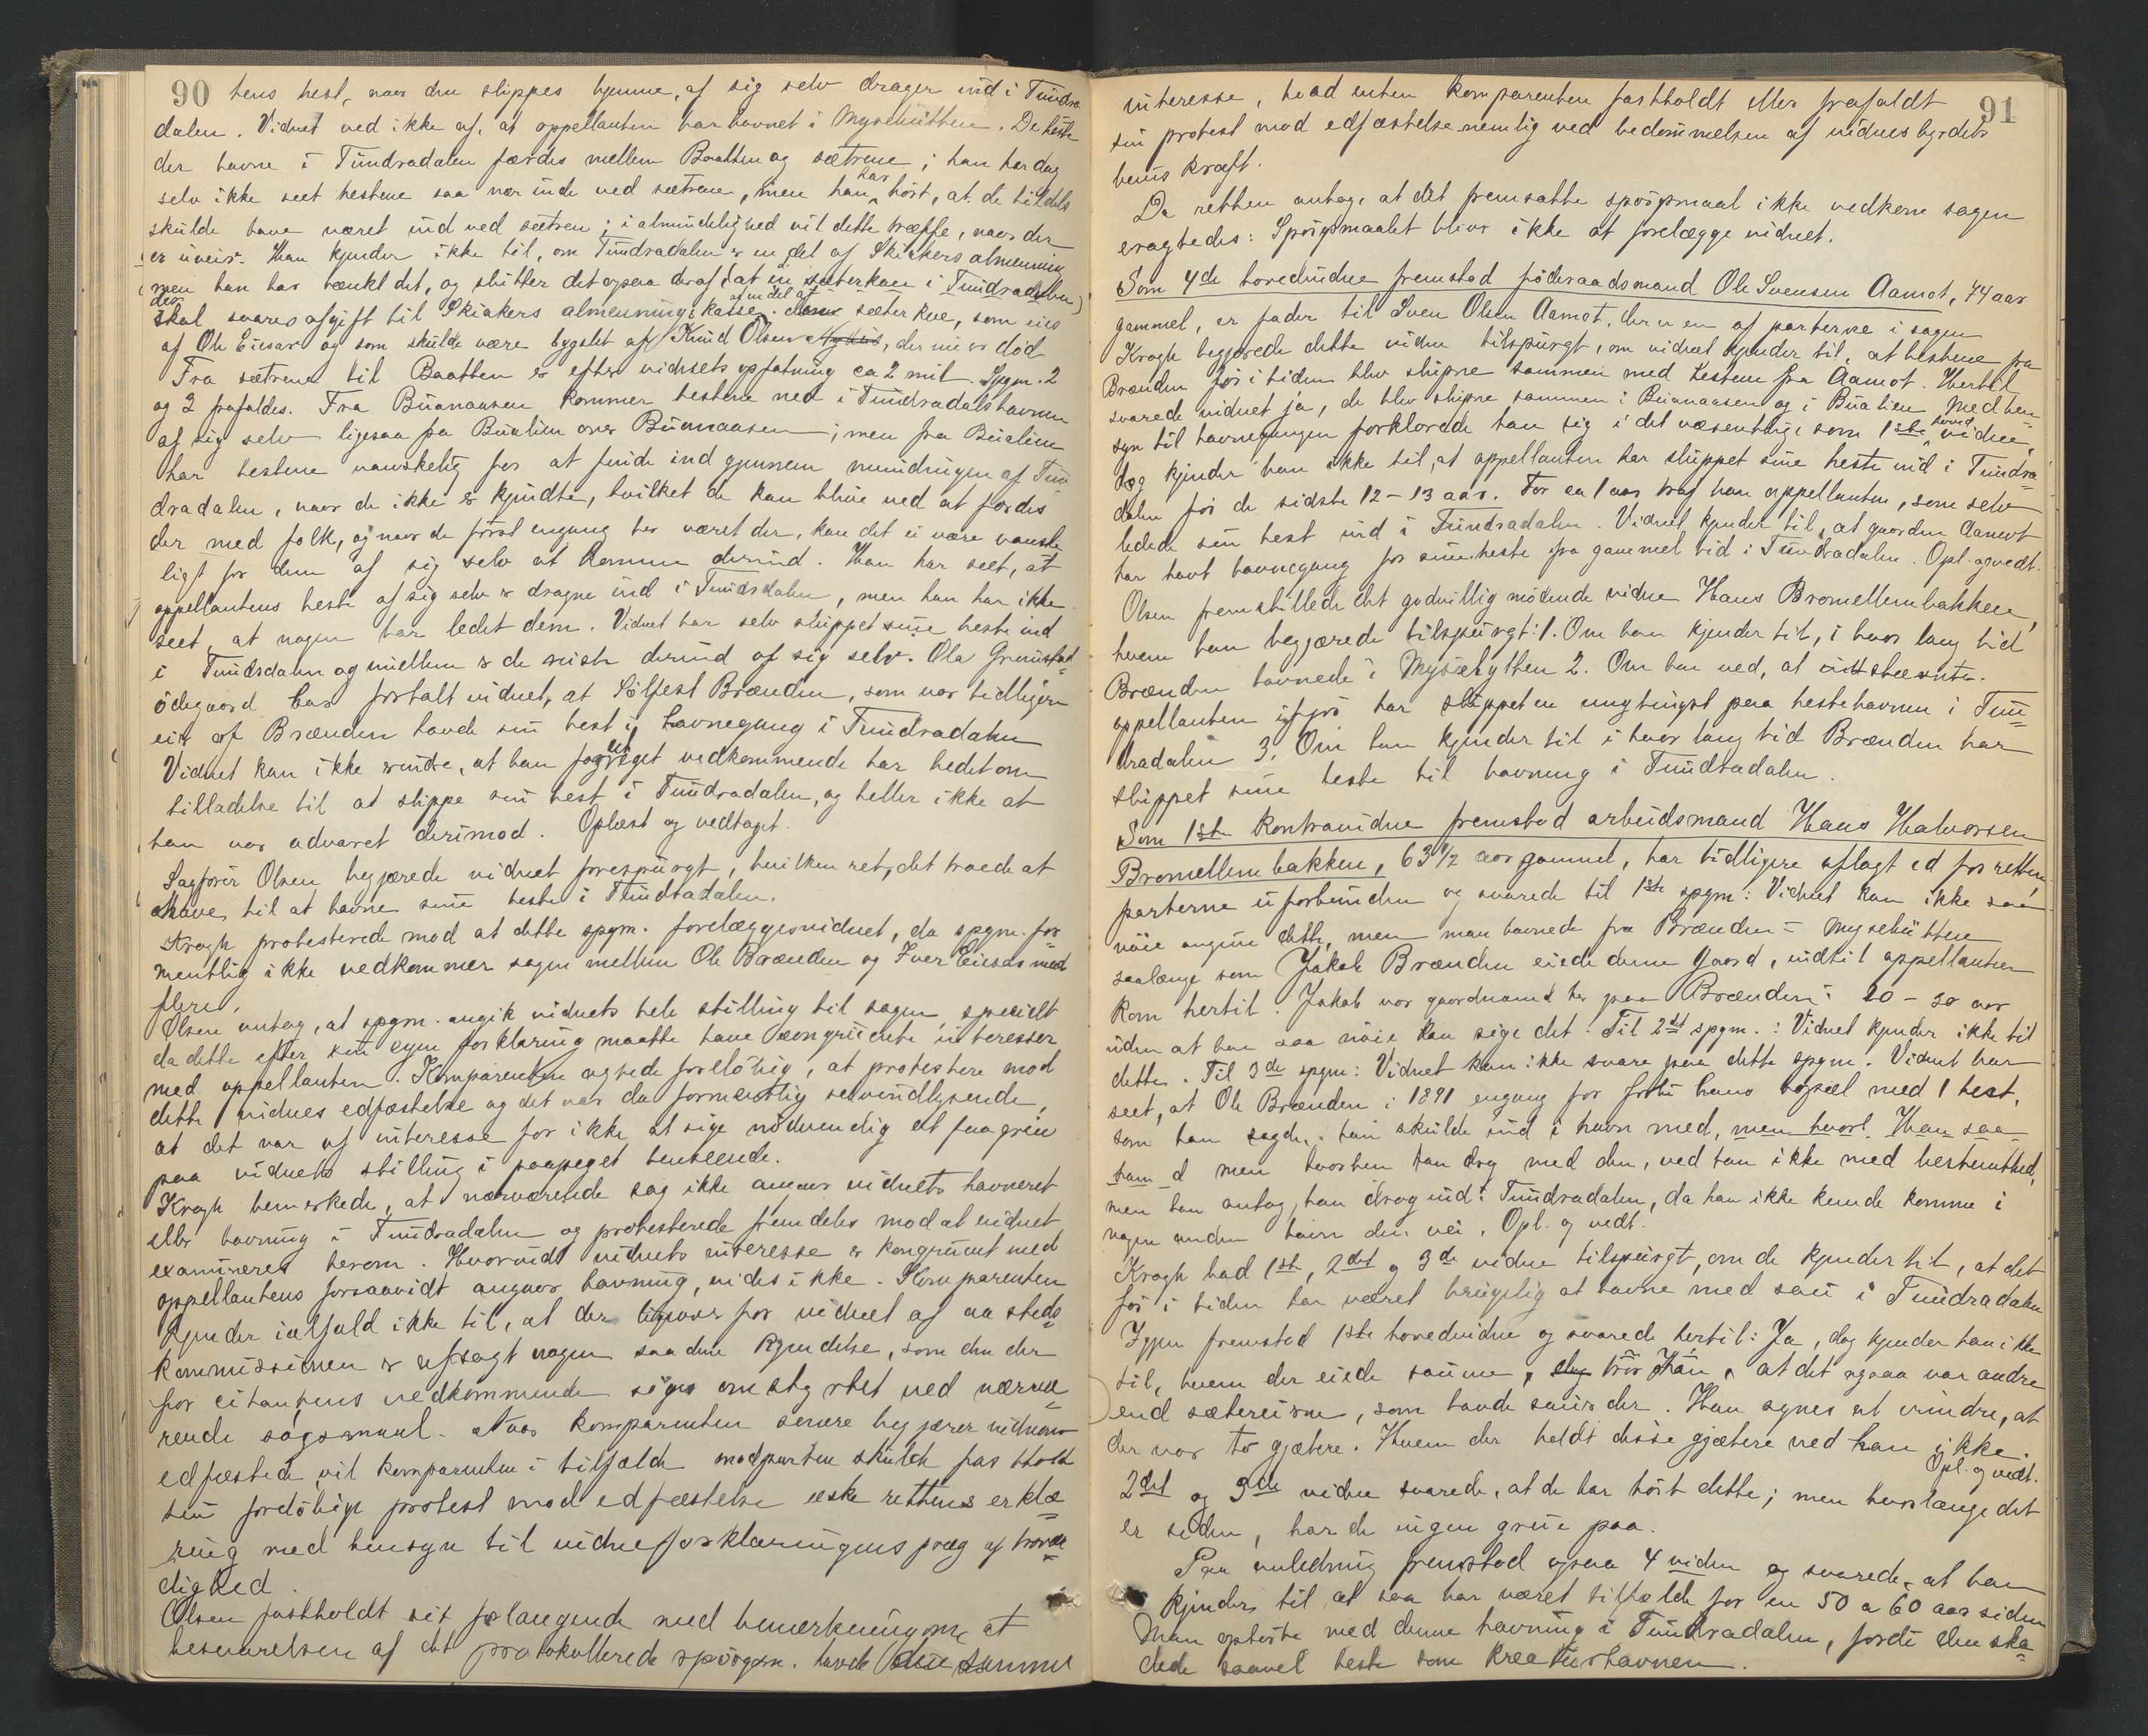 90
tens hest, naar den slippes hjemme, af sig selv drager ind i Tundra
dalen. Vidnet ved ikke af, at appellanten har havnet i Mysehütten. De heste
der havne i Tundradalen færdes mellem Baatten og sætrene; han har dog
selv ikke seet hestene saa nær inde ved sætrene, men han har hört, at de tildels
skulde have været ind ved sætren; i almindelighed vil dette træffe, naar der
er uveir. Han kjender ikke til, om Tundradalen er en del af Skiakers almenning
men han har tænkt det, og slutter det ogsaa deraf, at en sæterkve i Tundradalen
der skal svares afgift til Skiakers almenningskasse af en del af sæterkve, som eies
af Ole Eiesar og som skulde være bygslet af Knud Olsen, der nu er död
Fra sætrene til Baatten er efter vidnets opfatning ca 2 mil. Spgm. 2
og 3 frafaldes. Fra Buanaasen kommer hestene ned i Tundradalshavnen
af sig selv ligesaa fra Bualien over Buanaasen; men fra Bualien
har hestene vanskelig for at finde ind gjennem mundingen af Tun
dradalen, naar de ikke er kjendte, hvilket de kan blive ved at færdes
der med folk, og naar de först engang har været der, kan det ei være vanske
ligt for dem af sig selv at komme derind. Han har seet, at
appellantens heste af sig selv er dragne ind i Tundradalen, men han har ikke
seet, at nogen har ledet dem. Vidnet har selv sluppet sine heste ind
i Tundradalen og imellem er de reiste derind af sig selv. Ola Grimstad
ödegaard har fortalt vidnet, at Sölfest Brænden, som var tidligere
eier af Brænden havde sin hest i havnegang i Tundradalen
Vidnet kan ikke erindre, at han for eget vedkommende har bedet om
tilladelse til at slippe sin hest i Tundradalen, og heller ikke at
han var advaret derimod. Oplæst og vedtaget.
Sagförer Olsen begjærede vidnet forespurgt, hvilken ret, det troede at
have til at havne sine heste i Tundradalen.
Kragh protesterede mod at dette spgm. forelægges vidnet, da spgm. for
mentlig ikke vedkommer sagen mellem Ole Brænden og Iver Eiesar med
flere.
Olsen antog, at spgm. angik vidnets hele stilling til sagen, specielt
da dette efter sin egen forklaring maatte have congruente interesser
med appellanten. Komparenten agtede forelöbig, at protestere mod
dette vidnes edfæstelse og det var da formentlig selvindlysende,
at det var af interesse for ikke at sige nödvendig at faa greie
paa vidnets stilling i paapeget henseende.
Kragh bemerkede, at nærværende sag ikke angaar vidnets havneret
eller havning i Tundradalen og protesterede fremdeles mod at vidnet
examineres herom. Hvorvidt vidnets interesse er kongruent med
appellantens forsaavidt angaar havning, vides ikke. Komparenten
kjender ialfald ikke til, at der ligeover for vidnet af aasteds
kommissionen er afsagt nogen saadan kjendelse, som den der
for citantens vedkommende söges omstyrtet ved nærvæ
rende sögsmaal. Naar komparenten senere begjærer vidnerne
edfæstede vil komparenten i tilfælde modparten skulde fastholde
sin forelöbige protest mod edfæstelse æske rettens erklæ
ring med hensyn til vidneforklaringens præg af trovær
dighed.
Olsen fastholdt sit forlangende med bemerkning om, at
besvarelsen af det protokollerede spörgsm. havde den samme
91
interesse, hvad enten komparenten fastholdt eller frafaldt
sin protest mod edfæstelse nemlig ved bedömmelsen af vidnesbyrdets
bevis kraft.
Da retten antog, at det fremsatte spörgsmaal ikke vedkom sagen
eragtedes: Spörgsmaalet bliver ikke at forelægge vidnet.
Som 4de hovedvidne fremstod föderaadsmand Ole Svensen Aamot, 74 aar
gammel, er fader til Sven Olsen Aamot, der er en af parterne i sagen
Kragh begjærede dette vidne tilspurgt, om vidnet kjender til, at hestene fra
Brænden för i tiden blev slupne sammen med hestene fra Aamot. Hertil
svarede vidnet ja, de blev slupne sammen i Buanaasen og i Bualien. Med hen
syn til havnegangen forklarede han sig i det væsentlige som 1ste hovedvidne,
dog kjender han ikke til, at appellanten har sluppet sine heste ind i Tundra
dalen för de sidste 12-13 aar. For ca 1 aar traf han appellanten, som selv
ledede sin hest ind i Tundradalen. Vidnet kjender til, at gaarden Aamot
har havt havnegang for sine heste fra gammel tid i Tundradalen. Opl. og vedt.
Olsen fremstillede det godvillig mödende vidne Hans Bromellembakken,
hvem han begjærede tilspurgt: 1. Om han kjender til, i hvor lang tid
Brænden havnede i Mysehytten 2. Om han ved, at
appellanten har sluppet en unghingst paa hestehavnen i Tun
dradalen 3. Om han kjender til i hvor lang tid Brænden har
sluppet sine heste til havning i Tundradalen.
Som 1ste kontravidne fremstod arbeidsmand Hans Halvorsen
Bromellembakken, 63 1/2 aar gammel, har tidligere aflagt ed for retten,
parterne uforbunden og svarede til 1ste spgm: Vidnet kan ikke saa
nöie angive dette, men man havnede fra Brænden i Mysehütten
saalænge som Jakob Brænden eiede denne gaard, indtil appellanten
kom hertil. Jakob var gaardmand her paa Brænden i 20-30 aar
uden at han saa nöie kan sige det. Til 2det spgm.: Vidnet kjender ikke til
dette. Til 3de spgm: Vidnet kan ikke svare paa dette spgm. Vidnet har
seet, at Ole Brænden i 1891 engang för forbi hans bopæl med 1 hest,
som han sagde, han skulde ind i havn med, men hvor! Han saa
ham d men hvorhen han drog med den, ved han ikke med bestemthed,
men han antog, han drog ind i Tundradalen, da han ikke kunde komme i
nogen anden havn den vei. Opl. og vedt.
Kragh bad 1ste, 2det og 3de vidne tilspurgt, om de kjender til, at det
för i tiden har været brugelig at havne med sau i Tundradalen
Igjen fremstod 1ste hovedvidne og svarede hertil: Ja, dog kjender han ikke
til, hvem der eiede sauene, tror han, at det ogsaa var andre
end sætereierne, som havde sauer der. Han synes at erindre, at
der var to gjætere. Hvem der holdt disse gjætere ved han ikke.
Opl. og vedt.
2det og 3de vidne svarede, at de har hört dette; men hvorlænge det
er siden, har de ingen greie paa.
Paa anledning fremstod ogsaa 4 vidne og svarede, at han
kjender til at saa har været tilfælde for en 50 a 60 aar siden
Man ophörte med denne havning i Tundradalen, fordi den ska
dede saavel heste som kreaturhavnen.